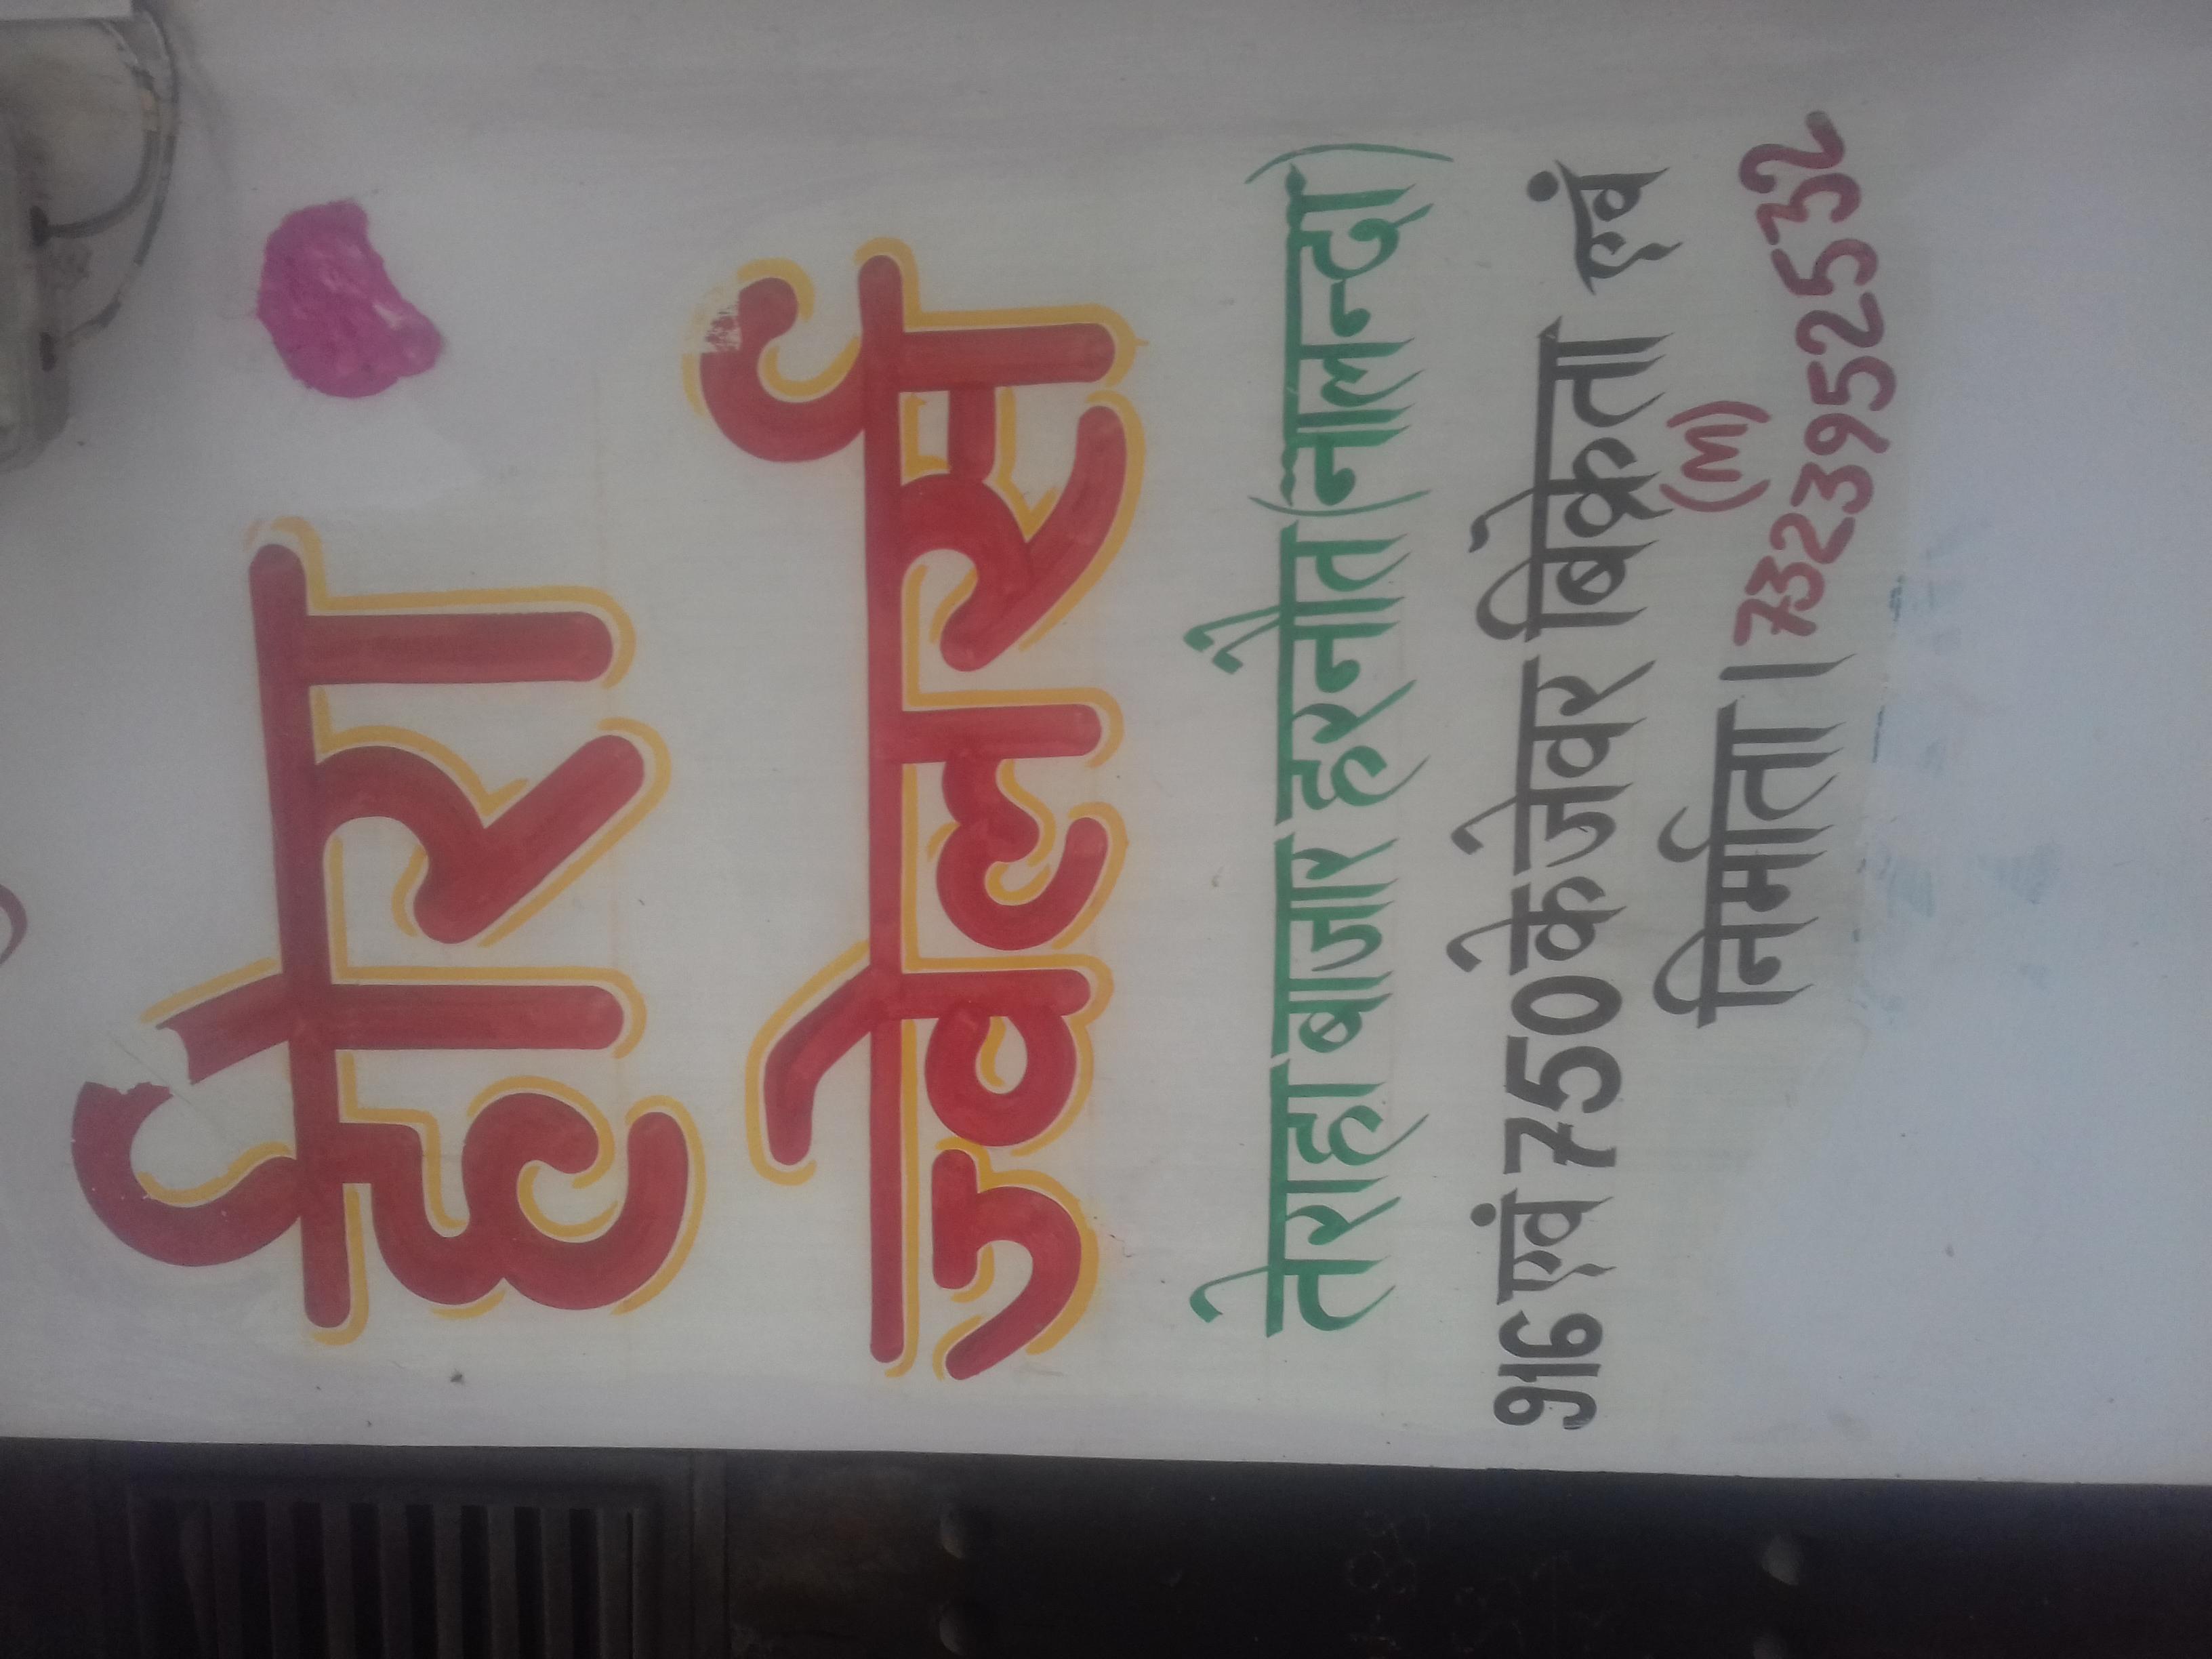 हीरा
जेवलर्स
तेराहा बाजार हरनौत (नालन्दा)
916 एवं 750 के जेवर बिक्रेता एवं
(M)
निर्माता । 7323952532